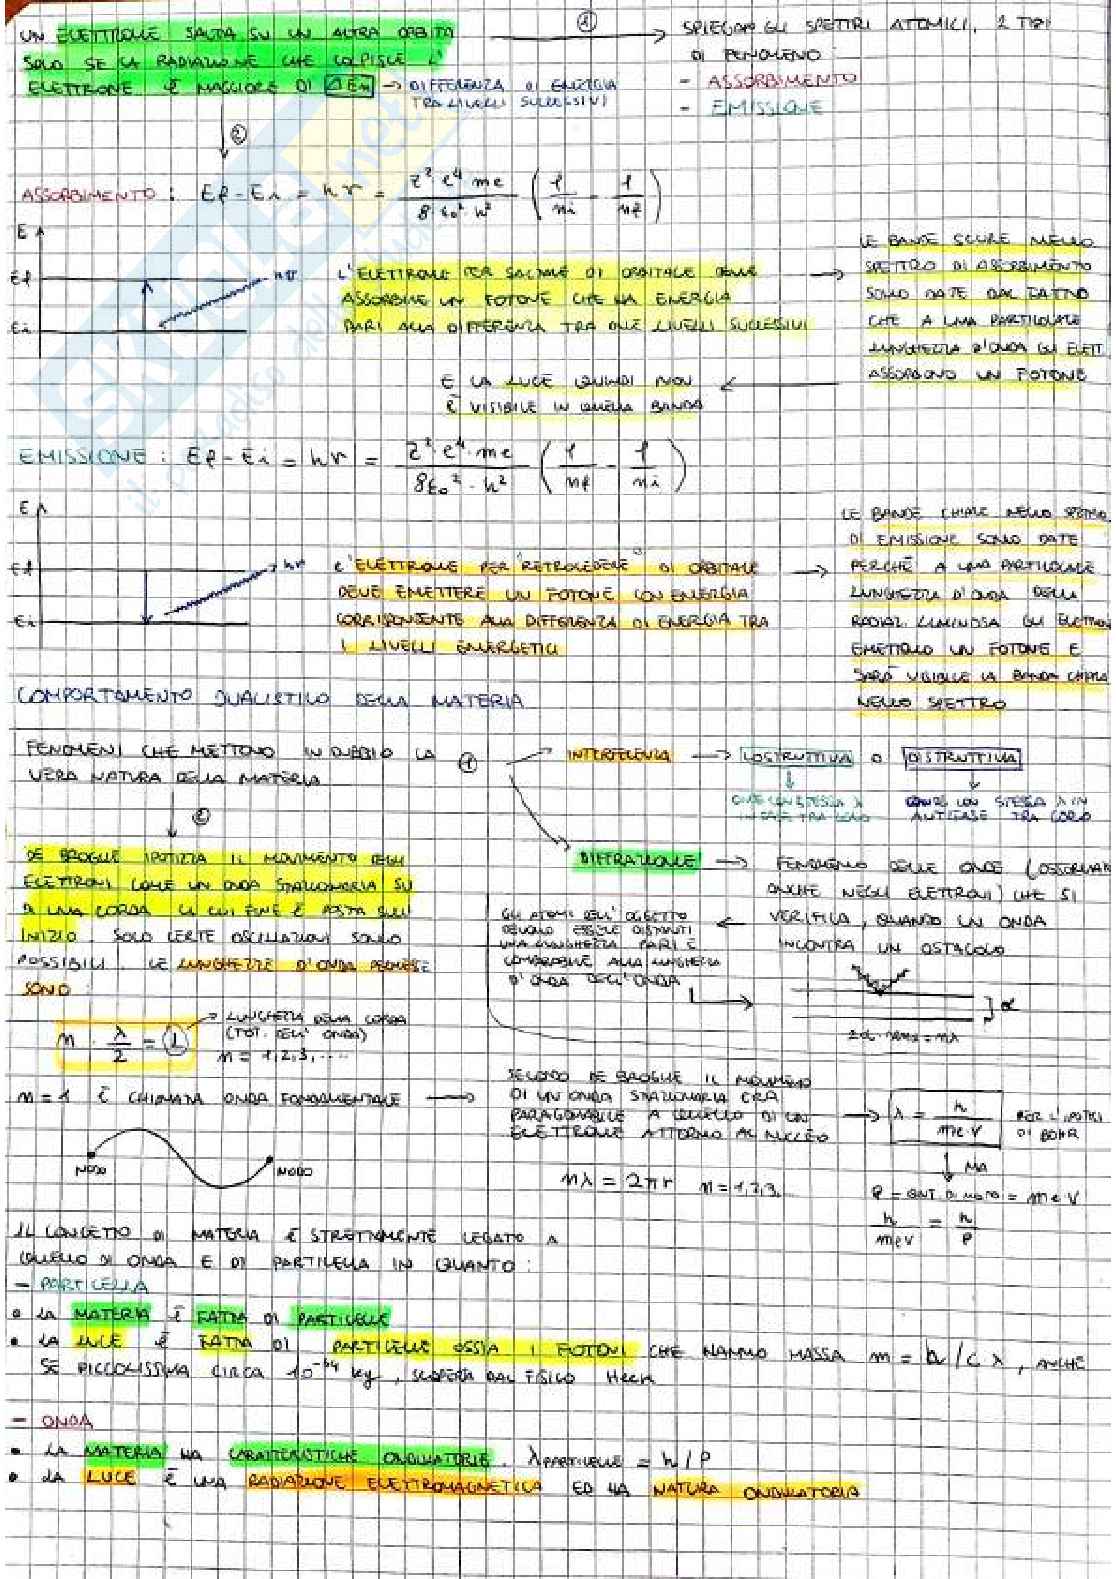 UN ELETTRONE SALTA SU UN ALTRA ORBITA
SOLO SE LA RADIAZIONE CHE COLPISCE L'
ELETTRONE È MAGGIORE DI ΔEn → DIFFERENZA DI ENERGIA
TRA LIVELLI SUCCESSIVI
SPIEGANO GLI SPETTRI ATOMICI, 2 TIPI
DI FENOMENO:
- ASSORBIMENTO
- EMISSIONE
②
ASSORBIMENTO : Ef - Ei = hν = z² e⁴ me / 8 ε0² h² (1/ni - 1/nf)
E
Ef
hν
Ei
L'ELETTRONE PER SALIRE DI ORBITALE DEVE
ASSORBIRE UN FOTONE CHE HA ENERGIA
PARI ALLA DIFFERENZA TRA DUE LIVELLI SUCCESSIVI
LE BANDE SCURE NELLO
SPETTRO DI ASSORBIMENTO
SONO DATE DAL FATTO
CHE A UNA PARTICOLARE
LUNGHEZZA D'ONDA GLI ELETT.
ASSORBONO UN FOTONE
E LA LUCE QUINDI NON
È VISIBILE IN QUELLA BANDA
EMISSIONE : Ef - Ei = hν = z² · e⁴ · me / 8ε0² · h² (1/nf - 1/ni)
E
Ef
hν
Ei
L'ELETTRONE PER RETROCEDERE DI ORBITALE
DEVE EMETTERE UN FOTONE CON ENERGIA
CORRISPONDENTE ALLA DIFFERENZA DI ENERGIA TRA
I LIVELLI ENERGETICI
LE BANDE CHIARE NELLO SPETTRO
DI EMISSIONE SONO DATE
PERCHÉ A UNA PARTICOLARE
LUNGHEZZA D'ONDA DELLA
RADIAZ. LUMINOSA GLI ELETTRONI
EMETTONO UN FOTONE E
SARÀ VISIBILE LA BANDA CHIARA
NELLO SPETTRO
COMPORTAMENTO DUALISTICO DELLA MATERIA
FENOMENI CHE METTONO IN DUBBIO LA
VERA NATURA DELLA MATERIA
①
INTERFERENZA → COSTRUTTIVA O DISTRUTTIVA
ONDE CON STESSA λ
IN FASE TRA LORO
ONDE CON STESSA λ IN
ANTIFASE TRA LORO
②
DE BROGLIE IPOTIZZA IL MOVIMENTO DEGLI
ELETTRONI COME UN ONDA STAZIONARIA SU
DI UNA CORDA LA CUI FINE È POSTA SULL'
INIZIO. SOLO CERTE OSCILLAZIONI SONO
POSSIBILI. LE LUNGHEZZE D'ONDA PERMESSE
SONO:
DIFFRAZIONE → FENOMENO DELLE ONDE (OSSERVAB
ANCHE NEGLI ELETTRONI) CHE SI
VERIFICA, QUANDO UN ONDA
INCONTRA UN OSTACOLO
GLI ATOMI DELL'OGGETTO
DEVONO ESSERE DISTANTI
UNA LUNGHEZZA PARI E
COMPARABILE ALLA LUNGHEZZA
D'ONDA DELL'ONDA
d
2d · senα = nλ
n · λ/2 = L
LUNGHEZZA DELLA CORDA
(TOT. DELL'ONDA)
n = 1,2,3,....
n = 1 È CHIAMATA ONDA FONDAMENTALE
NODO
NODO
SECONDO DE BROGLIE IL MOVIMENTO
DI UN ONDA STAZIONARIA ERA
PARAGONABILE A QUELLO DI UN
ELETTRONE ATTORNO AL NUCLEO
λ = h / me·v
PER L'IPOTESI
DI BOHR
MA
nλ = 2πr n = 1,2,3,
P = QNT. DI MOTO = me v
h / me v = h / P
IL CONCETTO DI MATERIA È STRETTAMENTE LEGATO A
QUELLO DI ONDA E DI PARTICELLA IN QUANTO:
- PARTICELLA
• LA MATERIA È FATTA DI PARTICELLE
• LA LUCE È FATTA DI PARTICELLE OSSIA I FOTONI CHE HANNO MASSA m = h / c λ, ANCHE
SE PICCOLISSIMA CIRCA kg, SCOPERTA DAL FISICO
- ONDA
• LA MATERIA HA CARATTERISTICHE ONDULATORIE. λ PARTICELLE = h / P
• LA LUCE È UNA RADIAZIONE ELETTROMAGNETICA ED HA NATURA ONDULATORIA
skuola.net
il paradiso dello studente